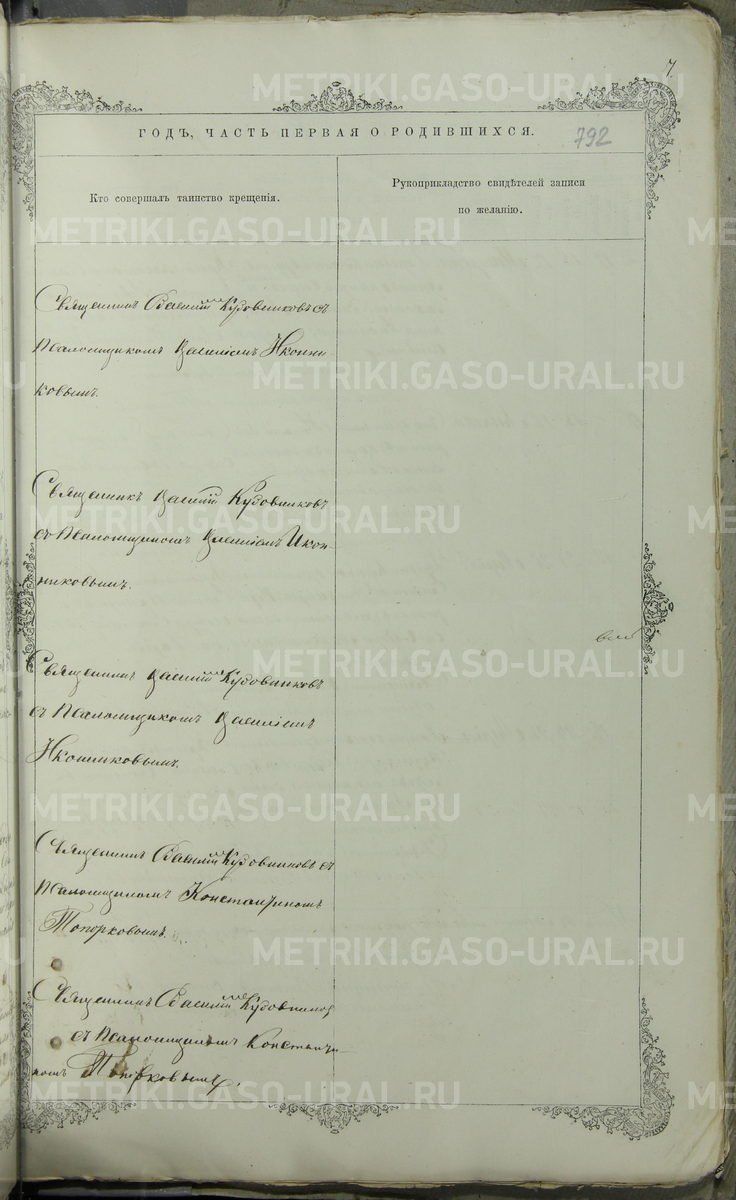 7
ГОДЪ, ЧАСТЬ ПЕРВАЯ О РОДИВШИХСЯ.
792
Кто совершалъ таинство крещенія.
Рукоприкладство свидѣтелей записи
по желанію.
Священникъ Василій Кудовниковъ съ
Псаломщикомъ Василіемъ Икони-
ковымъ.
Священникъ Василій Кудовниковъ
съ Псаломщикомъ Василіемъ Икон-
никовымъ.
Священникъ Василій Кудовниковъ
съ Псаломщикомъ Василіемъ
Иконниковымъ.
Священникъ Василій Кудовниковъ съ
Псаломщикомъ Константиномъ
Топорковымъ.
Священникъ Василій Кудовников
съ Псаломщикомъ Константи-
номъ Топорковымъ.
METRIKI.GASO-URAL.RU
METRIKI.GASO-URAL.RU
METRIKI.GASO-URAL.RU
METRIKI.GASO-URAL.RU
METRIKI.GASO-URAL.RU
METRIKI.GASO-URAL.RU
METRIKI.GASO-URAL.RU
METRIKI.GASO-URAL.RU